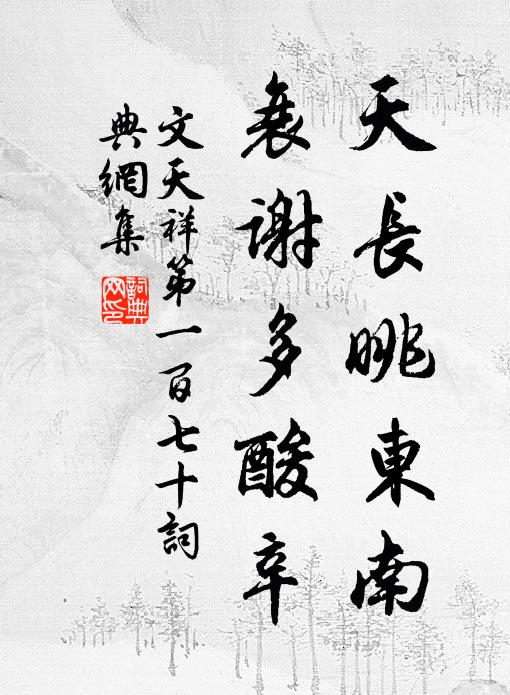 天長眺東南
衰謝多酸辛
文天祥第一百七十詞
典網集
詞典
网印